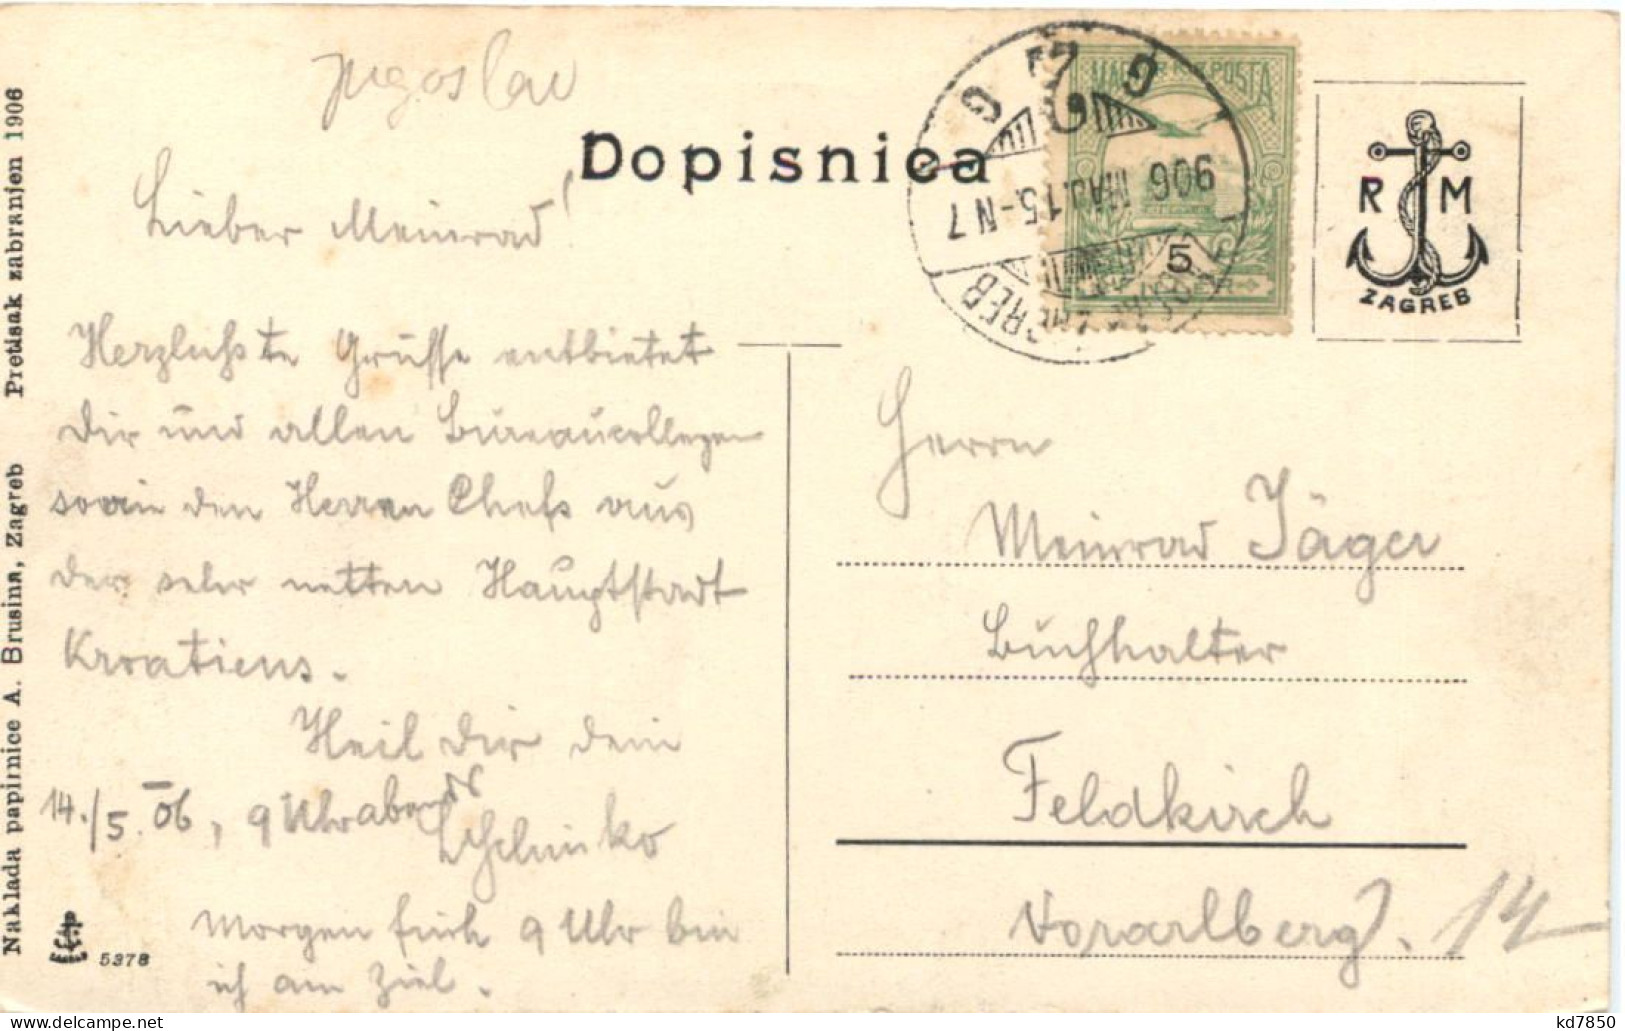 Jugoslav
Dopisnica
MAGYAR KIR. POSTA
5
906 MAJ. 15.-N 7
ZAGREB
R M
ZAGREB
Lieber Meinrad!
Herzlichste Grüsse entbietet
Dir und allen Bureaucollegen
sowie den Herren Chefs aus
der sehr netten Hauptstadt
Kroatiens.
Heil Dir dein
14./5. 06, 9 Uhr abends
Morgen früh 9 Uhr bin
ich am Ziel.
Herrn
Meinrad Jäger
Buchhalter
Feldkirch
Vorarlberg.
14
Naklada papirnice A. Brusina, Zagreb Pretisak zabranjen 1906
5378
kd7850